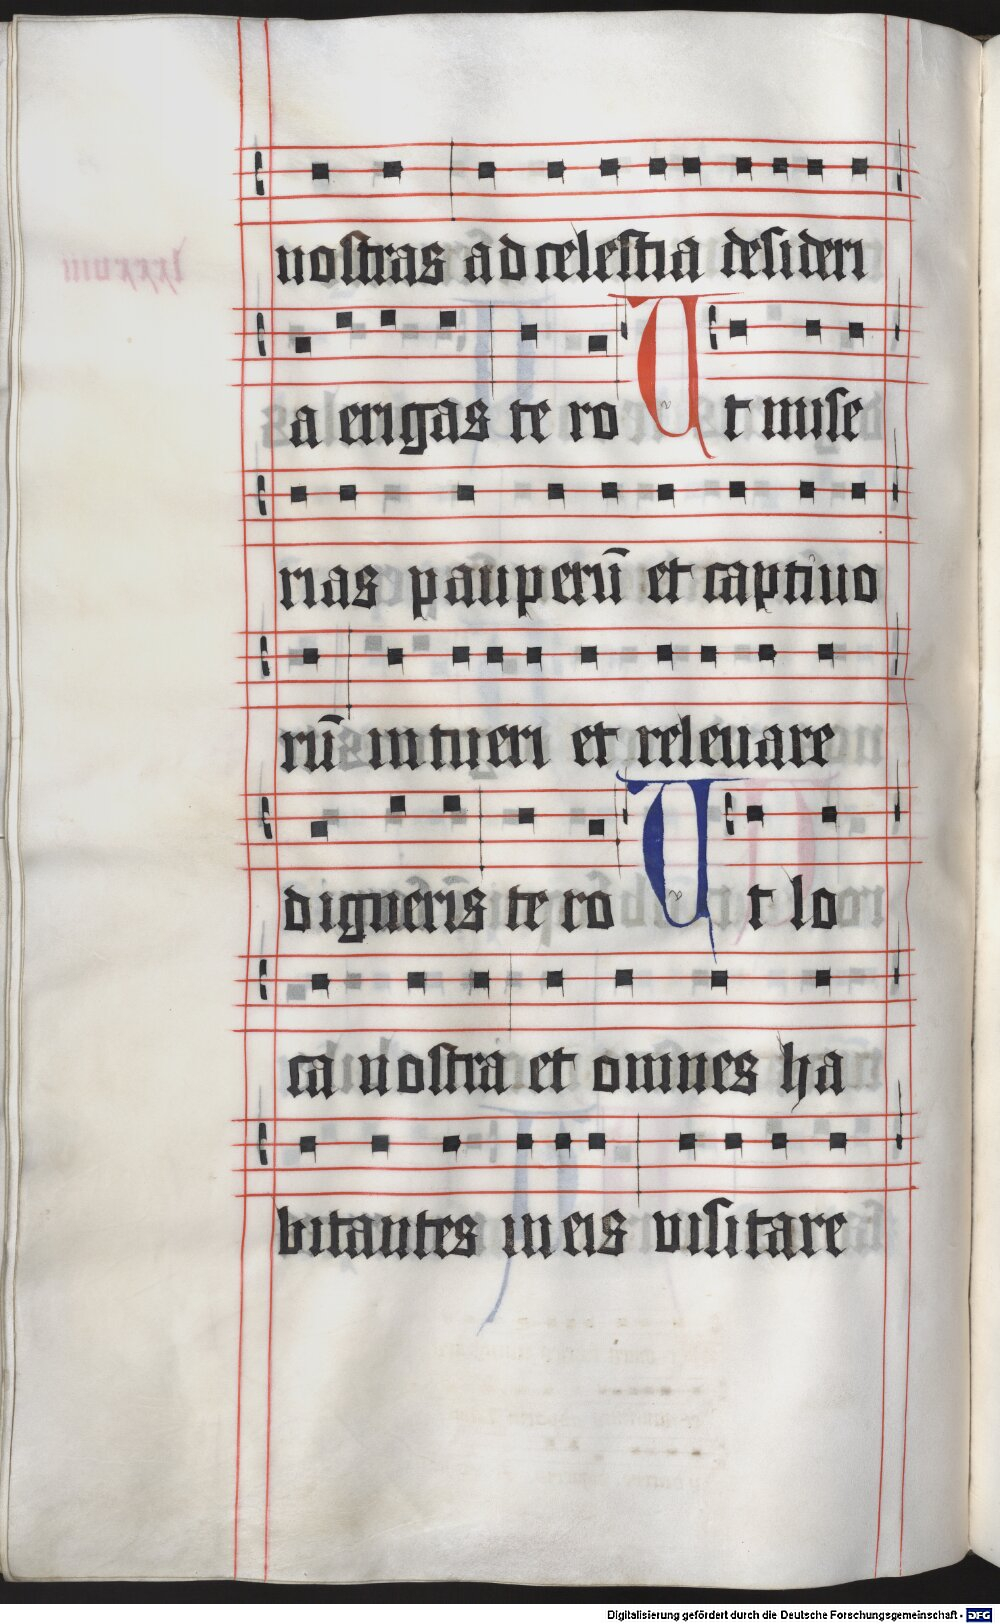 nostras ad celestia desideri
a erigas te ro Ut mise
rias pauperū et captiuo
rū intueri et releuare
digneris te ro Ut lo
ca nostra et omnes ha
bitantes in eis visitare
Digitalisierung gefördert durch die Deutsche Forschungsgemeinschaft - DFG